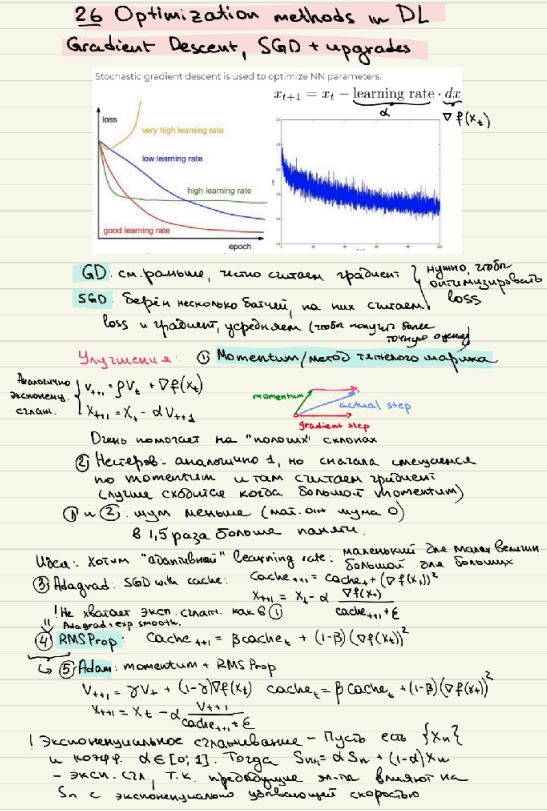 26 Optimization methods in DL
Gradient Descent, SGD + upgrades
Stochastic gradient descent is used to optimize NN parameters.
x_{t+1} = x_t − learning rate · dx
α ∇f(x_t)
loss
very high learning rate
low learning rate
high learning rate
good learning rate
epoch
GD: см. раньше, честно считаем градиент } нужно, чтобы оптимизировать loss
SGD: берём несколько батчей, на них считаем
loss и градиент, усредняем (чтобы получить более
точную оценку)
Улучшения: ① Momentum/метод тяжелого шарика
Аналогично экспоненц. сглаж. { V_{t+1} = ρV_t + ∇f(x_t)
X_{t+1} = X_t - αV_{t+1}
momentum
actual step
gradient step
Очень помогает на "пологих" склонах
② Нестеров: аналогично 1, но сначала смещаемся
по momentum и там считаем градиент
(лучше сходится когда большой momentum)
① и ②: шум меньше (мат. ож шума 0)
в 1,5 раза больше памяти.
Идея: хотим "адаптивный" learning rate: маленький для малых величин
большой для больших
③ Adagrad: SGD with cache: cache_{t+1} = cache_t + (∇f(x_t))²
x_{t+1} = x_t - α ∇f(x_t) / cache_{t+1} + ε
! Не хватает эксп. сглаж. как в ①
Adagrad + exp smooth.
④ RMSProp: cache_{t+1} = β cache_t + (1-β)(∇f(x_t))²
⑤ Adam: momentum + RMS Prop
V_{t+1} = γV_t + (1-γ)∇f(x_t) cache_t = β cache_t + (1-β)(∇f(x_t))²
x_{t+1} = x_t - α V_{t+1} / cache_{t+1} + ε
! Экспоненциальное сглаживание - Пусть есть {x_n}
и коэф. α ∈ [0; 1]. Тогда S_{n+1} = αS_n + (1-α)x_n
- эксп. сгл, т.к. предыдущие эл-ты влияют на
S_n с экспоненциально убывающей скоростью